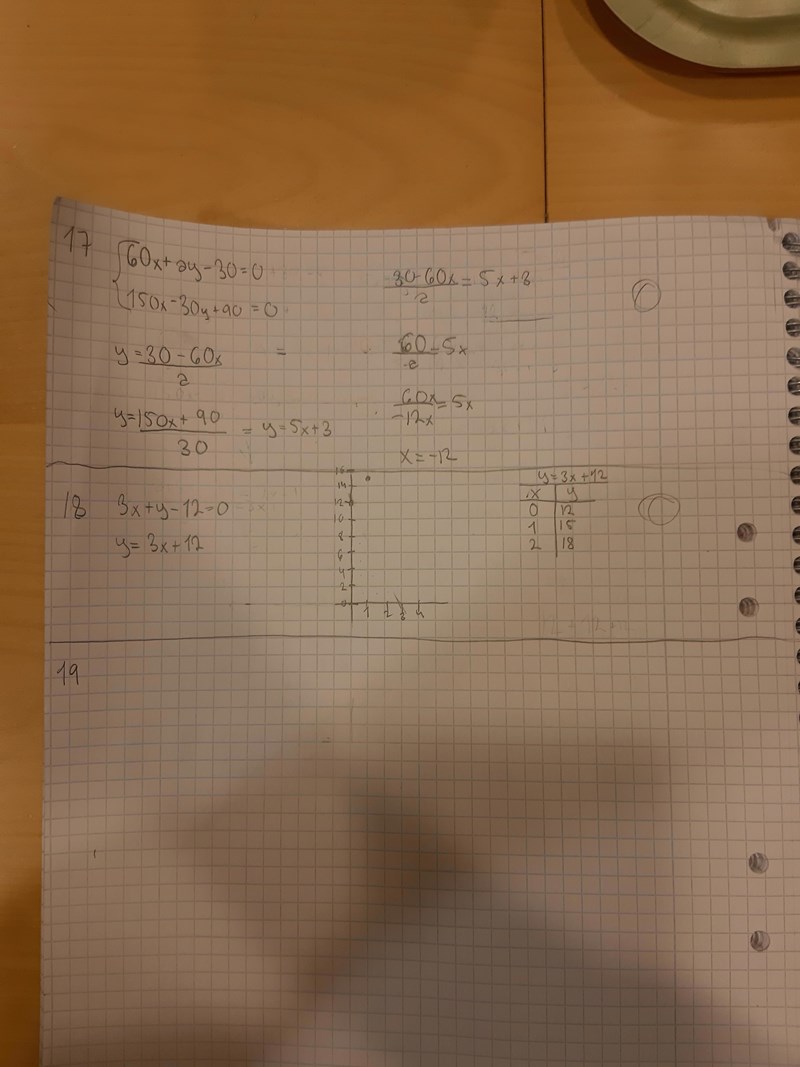 17
60x+2y-30=0
150x-30y+90=0
y=30-60x
2
=
y=150x+90
30
= y=5x+3
30-60x
2
=5x+3
60=5x
2
60x=5x
-12x
x=-12
18
3x+y-12=0
y=3x+12
16
14
12
10
8
6
4
2
0
1 2 3 4
y=3x+12
x y
0 12
1 15
2 18
19